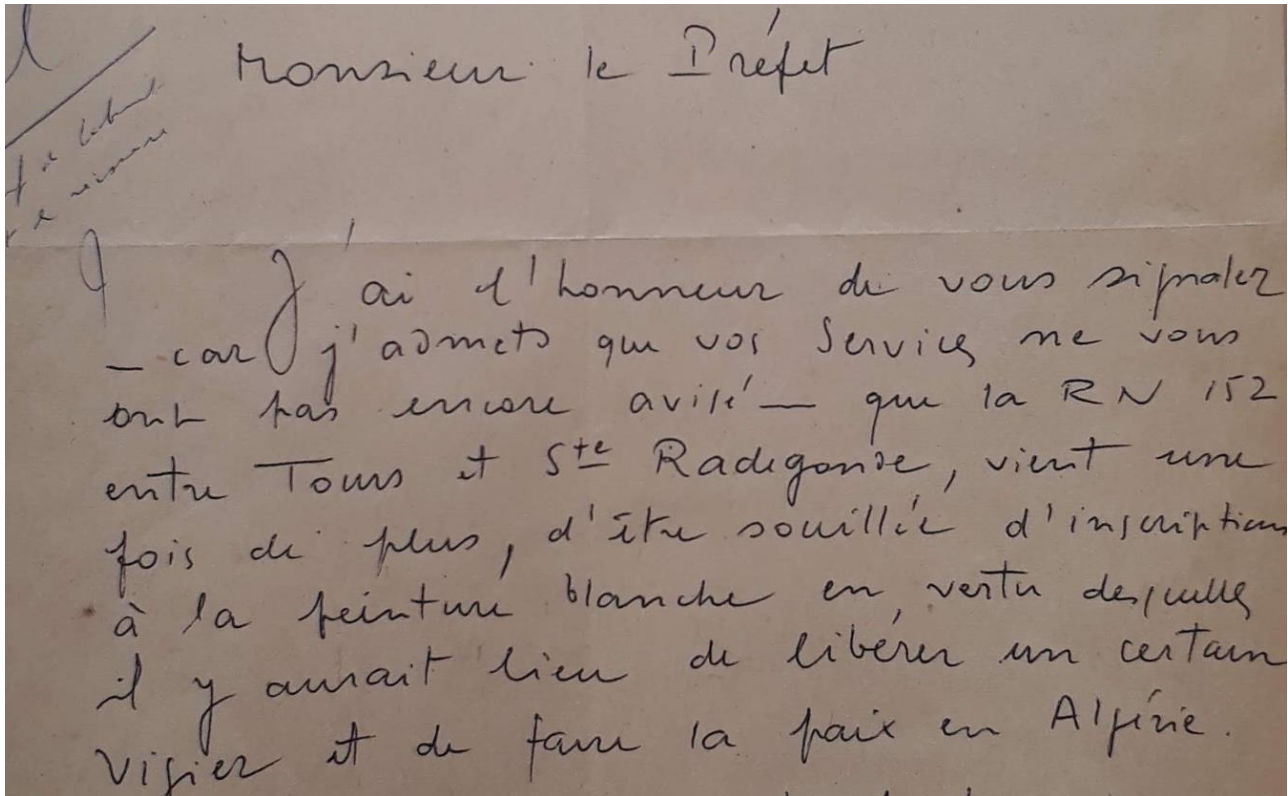 Monsieur le Préfet
J'ai l'honneur de vous signaler
– car j'admets que vos Services ne vous
ont pas encore avisé – que la RN 152
entre Tours et Ste Radegonde, vient une
fois de plus, d'être souillée d'inscriptions
à la peinture blanche en vertu desquelles
il y aurait lieu de libérer un certain
Vigier et de faire la paix en Algérie.